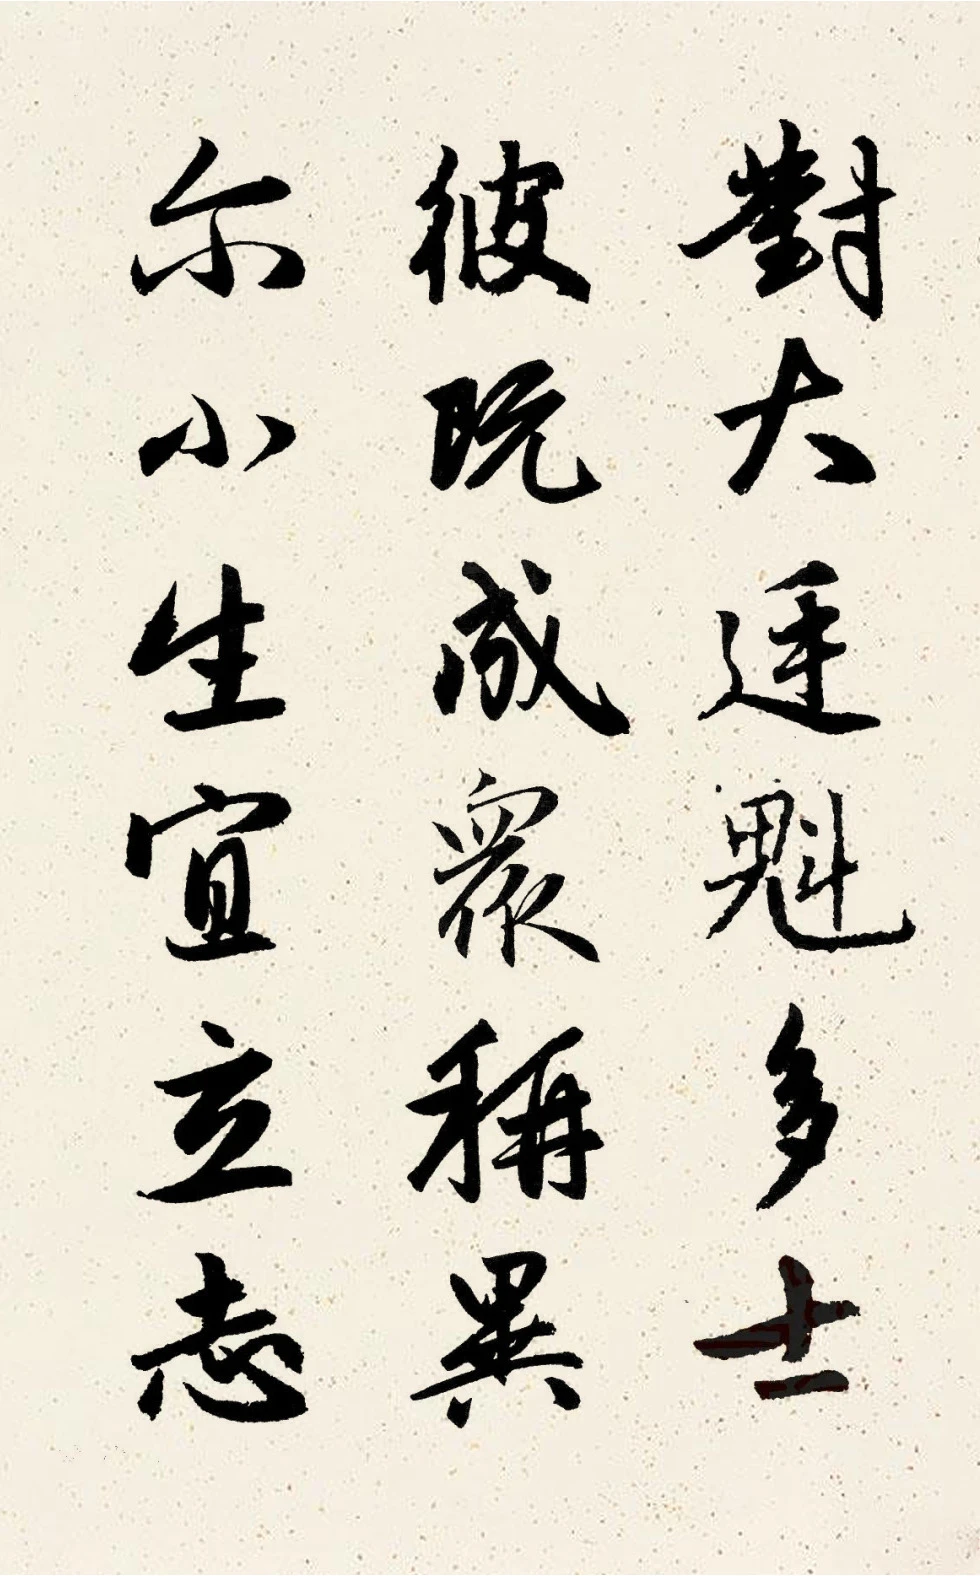 對大廷魁多士
彼既成眾稱異
尔小生宜立志